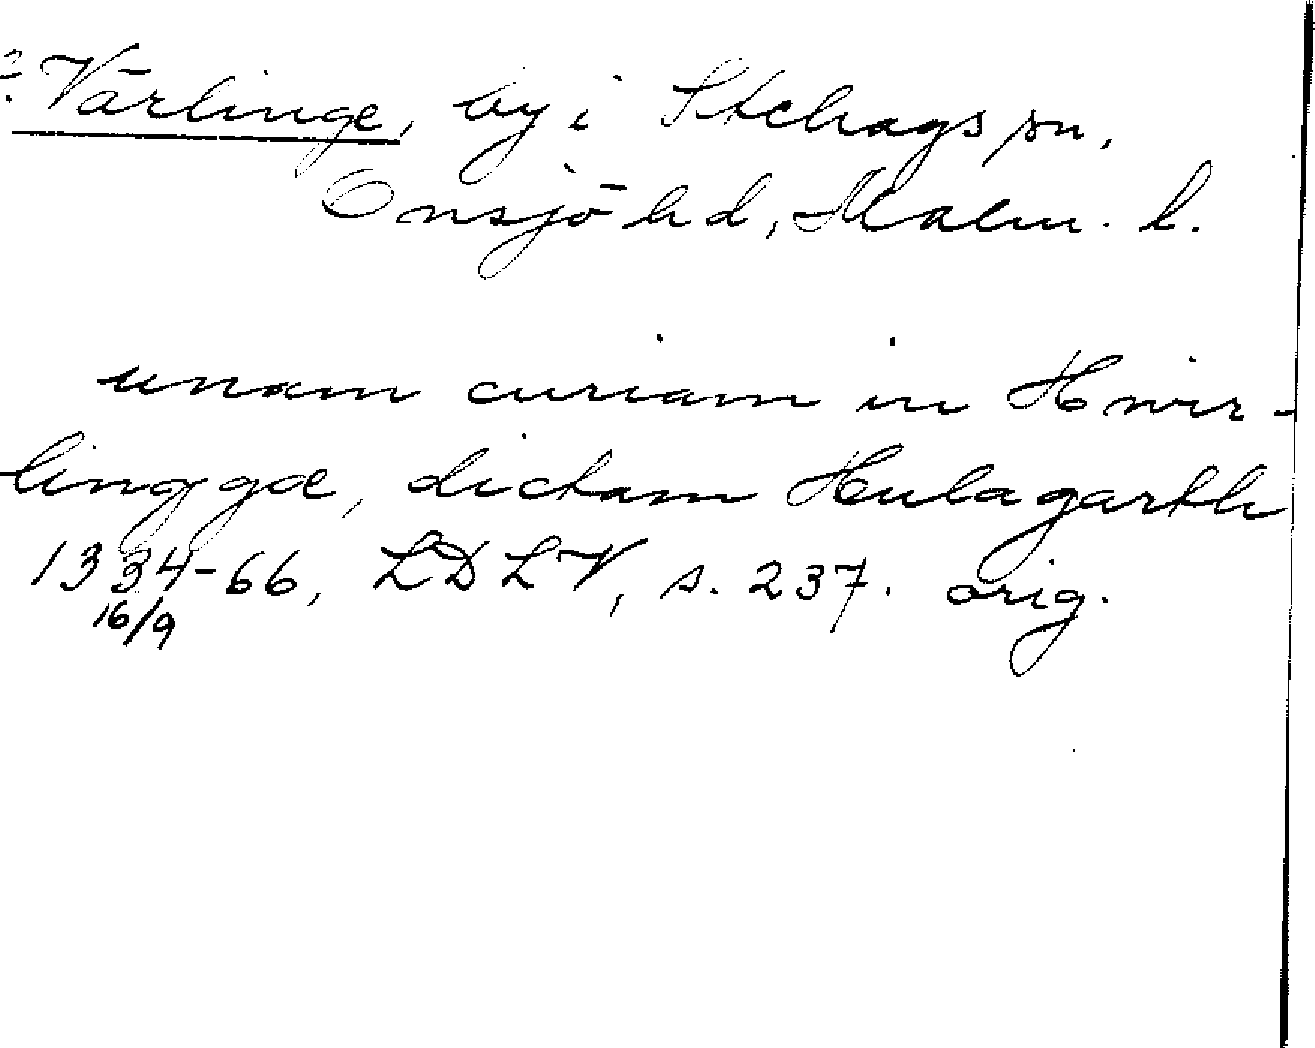 ?. Värlinge, by i Stehags sn,
Onsjö hd, Malm. l.
unam curiam in Hwir-
linggæ, dictam Hulagarth
1334-66, LDLV, s. 237. orig.
16/9